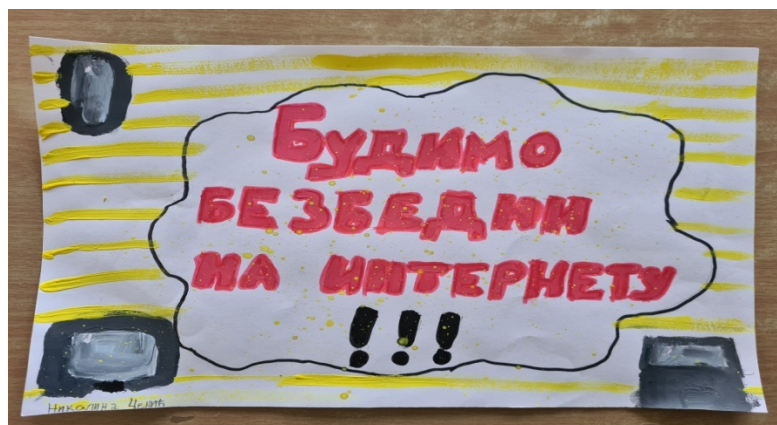 Будимо
БЕЗБЕДНИ
НА ИНТЕРНЕТУ
!!!
Николина